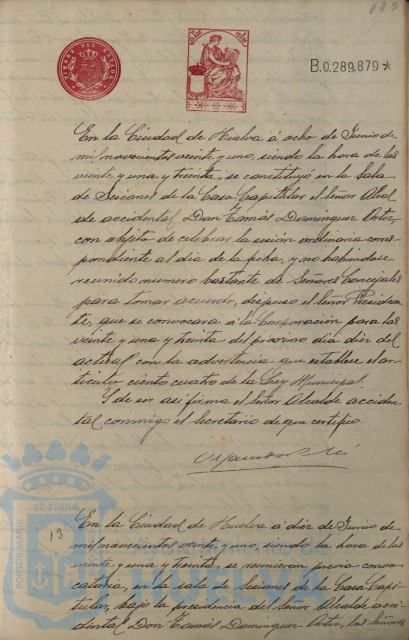 TIMBRE DEL ESTADO
B.0.289,879*
En la Ciudad de Huelva á ocho de Junio de
mil novecientos veinte y uno, siendo la hora de las
veinte y una y treinta, se constituyó en la Sala
de Sesiones de la Casa Capitular el Señor Alcal
de accidental Don Tomás Dominguez Ortiz,
con objeto de celebrar la sesión ordinaria corres
pondiente al dia de la fecha, y no habiendose
reunido numero bastante de Señores Concejales
para tomar acuerdo, dispuso el Señor Presiden
te, que se convocara á la Corporación para las
veinte y una y treinta del proximo dia diez del
actual con la advertencia que establece el ar
ticulo ciento cuatro de la Ley Municipal.
Y de ser asi firma el Señor Alcalde acciden
tal conmigo el Secretario de que certifico.
13
En la Ciudad de Huelva a diez de Junio de
mil novecientos veinte y uno, siendo la hora de las
veinte y una y treinta, se reunieron previa convo
catoria, en la sala de Sesiones de la Casa Capi
tular, bajo la presidencia del Señor Alcalde acci
dental Don Tomás Dominguez Ortiz, los Señores
HUELVA